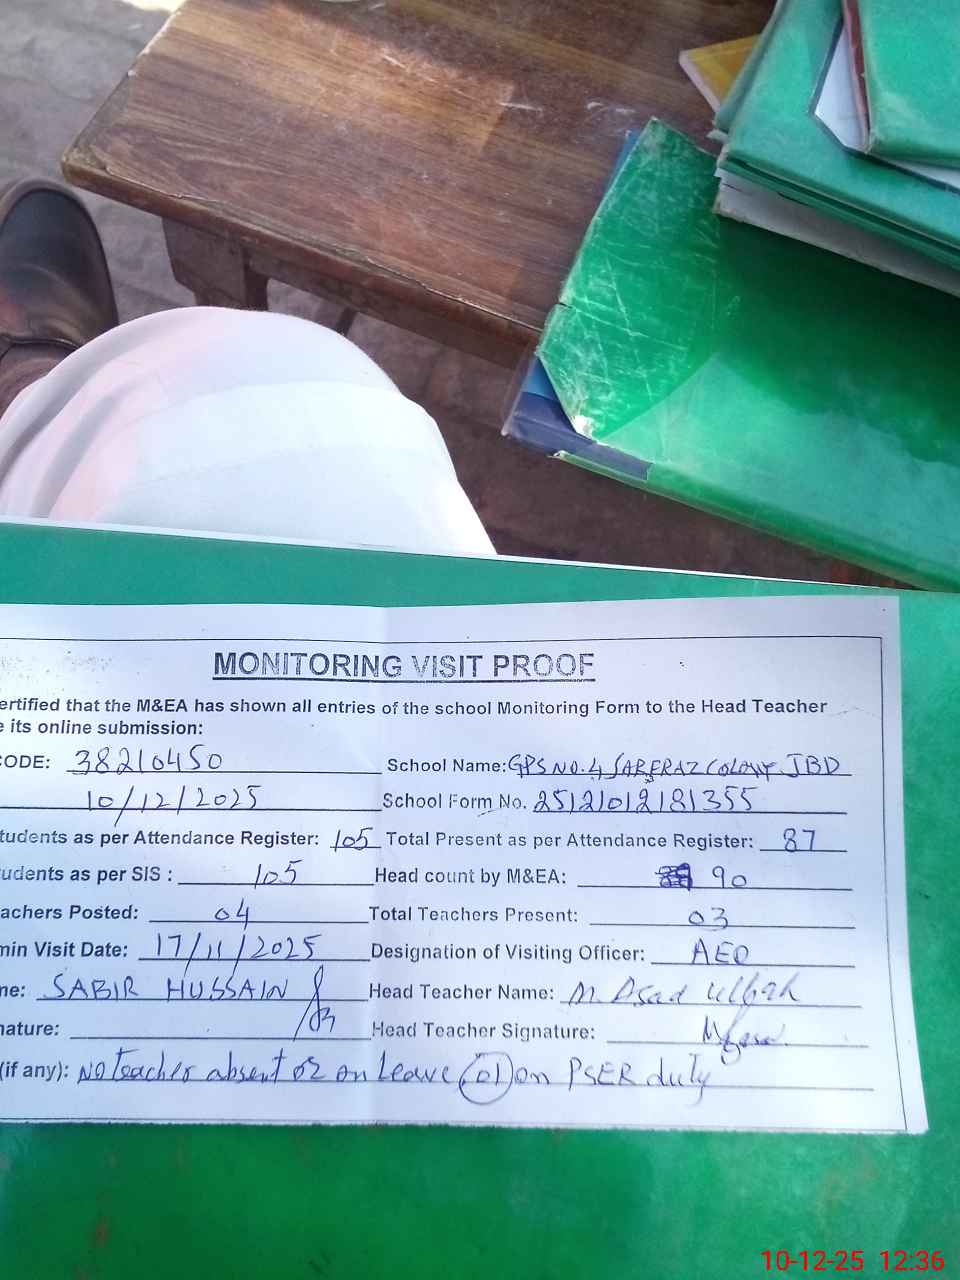 MONITORING VISIT PROOF
ertified that the M&EA has shown all entries of the school Monitoring Form to the Head Teacher
e its online submission:
CODE: 38210450 School Name: GPS NO. 4 SARFRAZ COLONY JBD
10/12/2025 School Form No. 2512101218 1355
tudents as per Attendance Register: 105 Total Present as per Attendance Register: 87
udents as per SIS : 105 Head count by M&EA: 90
achers Posted: 04 Total Teachers Present: 03
min Visit Date: 17/11/2025 Designation of Visiting Officer: AEO
ne: SABIR HUSSAIN Head Teacher Name: M. Asad Ullah
nature: Head Teacher Signature:
(if any): No teacher absent or on Leave (01) on PSER duty
10-12-25 12:36